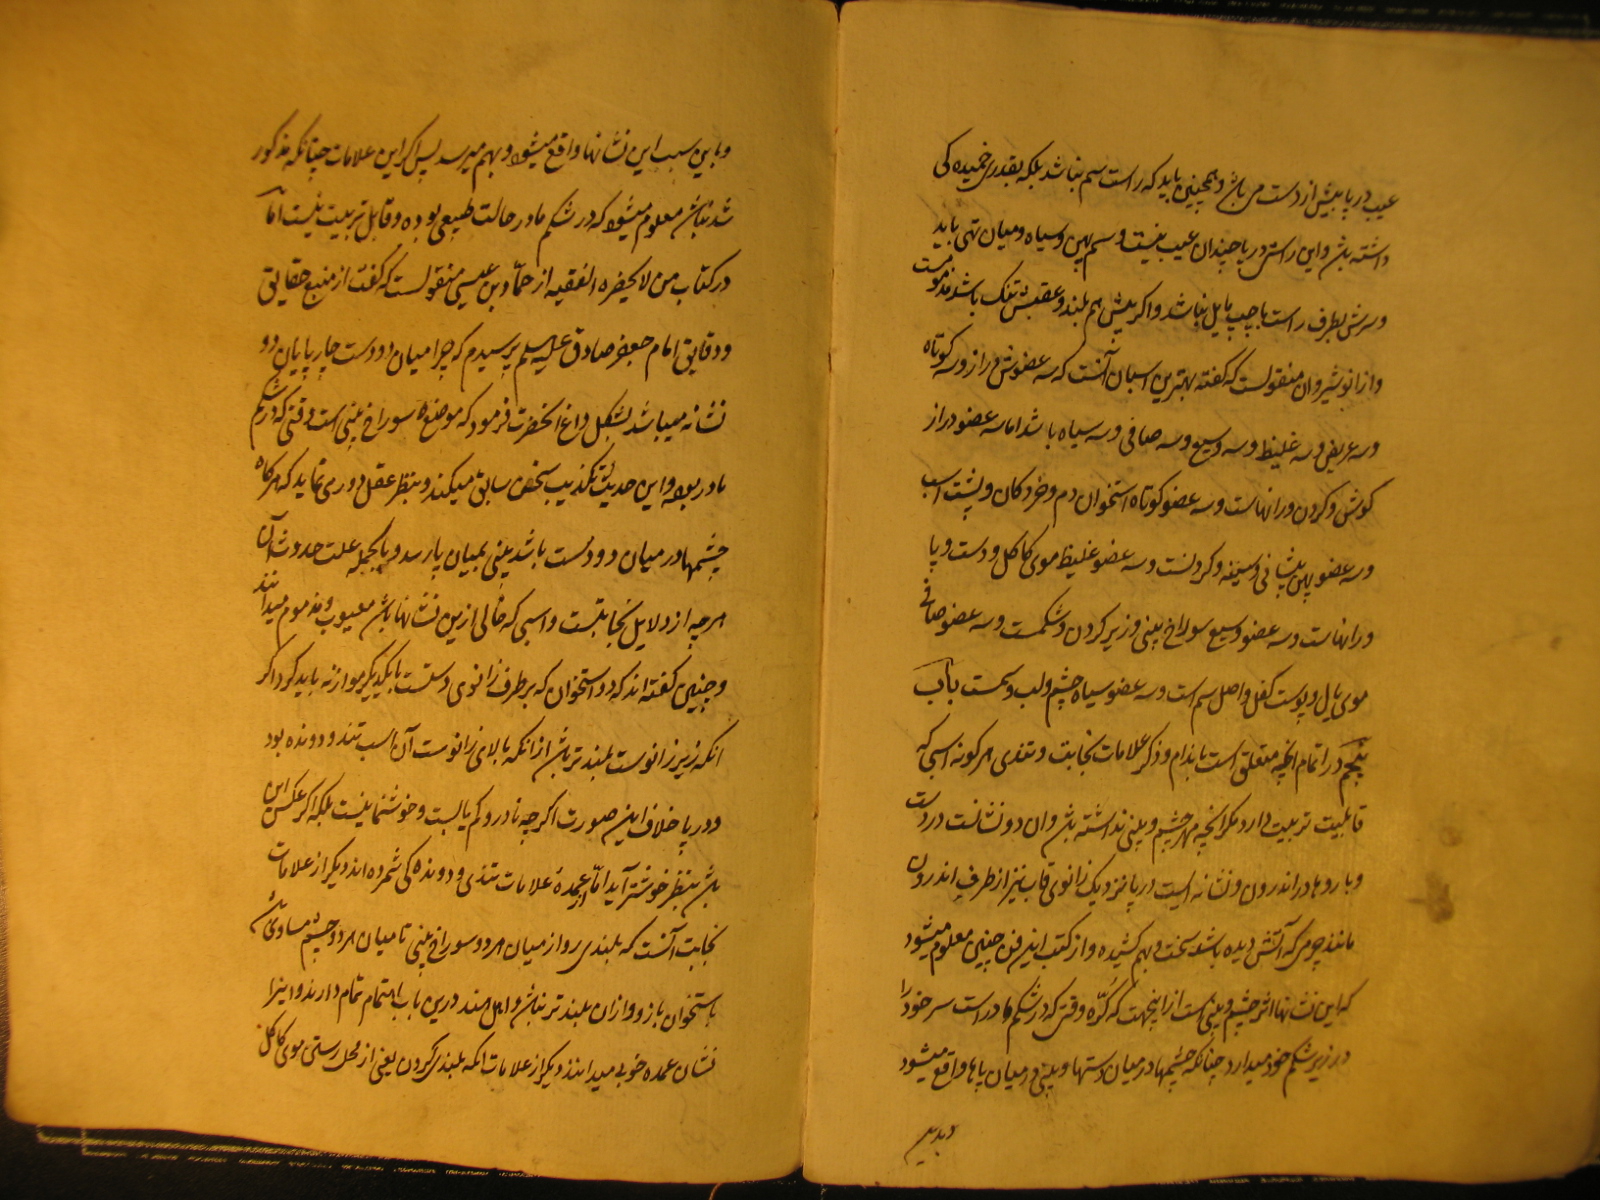 عیب در پا بیش از دست می باشد و همچنین باید که راست سم نباشد بلکه بقدری خمیده کی
داشته باشد و این راستی در پا چندان عیب نیست و سم پهن و سیاه و میان تهی باید
و سرش بطرف راست یا چپ مایل نباشد و اگر پیش سم بلند و عقبش تنک باشد مذمومست
و از انوشیروان منقولست که گفته بهترین اسبان آنست که سه عضوش دراز و سه کوتاه
و سه عریض و سه غلیظ و سه وسیع و سه صافی و سه سیاه باشد اما سه عضو دراز
کوش و کردن و رانهاست و سه عضو کوتاه استخوان دم و خردکان و پشت اسب
و سه عضو پهن پیشانی و سینه و کردنست و سه عضو غلیظ موی کاکل و دست و پا
و رانهاست و سه عضو وسیع سوراخ بینی و زیر کردن و شکمست و سه عضو صافی
موی یال و پوست کفل و اصل سم است و سه عضو سیاه چشم و لب و سمست باب
پنجم در اتمام انچه متعلق است باندام و ذکر علامات نجابت و تندی هر کونه اسبی که
قابلیت تربیت دارد مکر انچه مهر چشم و بینی نداشته باشد و ان دو نشانست در دست
و بازوها در اندرون و نشانه ایست در پا نزدیک زانوی قاب نیز از طرف اندرون
مانند چرمی که آتش دیده باشد سخت و بهم کشیده و از کتب این فن چنین معلوم میشود
که این نشانها اثر چشم و بینی است از اینجهت که کرّه وقتی که در شکم مادر است سر خود را
در زیر شکم خود میدارد چنانکه چشمها در میان دستها و بینی در میان پاها واقع میشود
و بدین
و باین سبب این نشانها واقع میشود و بهم میرسد پس اکر این علامات چنانکه مذکور
شد نباشد معلوم میشود که در شکم مادر حالت طبیعی بوده و قابل تربیت نیست امّا
در کتاب من لا یحضره الفقیه از حمّاد بن عیسی منقولست که گفت از منبع حقایق
و دقایق امام جعفر صادق علیه السلم پرسیدم که چرا میان دو دست چارپایان دو
نشانه میباشد بشکل داغ انحضرت فرمود که موضع سوراخ بینی است وقتی که در شکم
مادر بوده و این حدیث تکذیب سخن سابق میکند و بنظر عقل دوری نماید که هرگاه
چشمها در میان دو دست باشد بینی بمیان پا رسد و بالجمله علت حدوث آن
هر چه از دلایل نجابتست و اسبی که خالی ازین نشانها باشد معیوب و مذموم میدانند
و چنین کفته اند که دو استخوان که بر طرف زانوی دستست با یکدیکر موازنه باید کرد اکر
انکه زیر زانوست بلندتر باشد از انکه بالای زانوست آن اسب تند و دونده بود
و در پا خلاف این صورت اکرچه نادر و کمیابست و خوشنما نیست بلکه اکر عکس این
باشد بنظر خوشتر آید امّا از عمدهٔ علامات تندی و دونده کی شمرده اند دیکر از علامات
نجابت آنست که بلندی رو از میان هر دو سوراخ بینی تا میان هر دو چشم مساوی باشد
باستخوان بازو و از ان بلندتر نباشد و اهل هند درین باب اهتمام تمام دارند و اینرا
نشان عمده خوبی میدانند دیکر از علامات انکه بلندی کردن یعنی از محل رستن موی کاکل